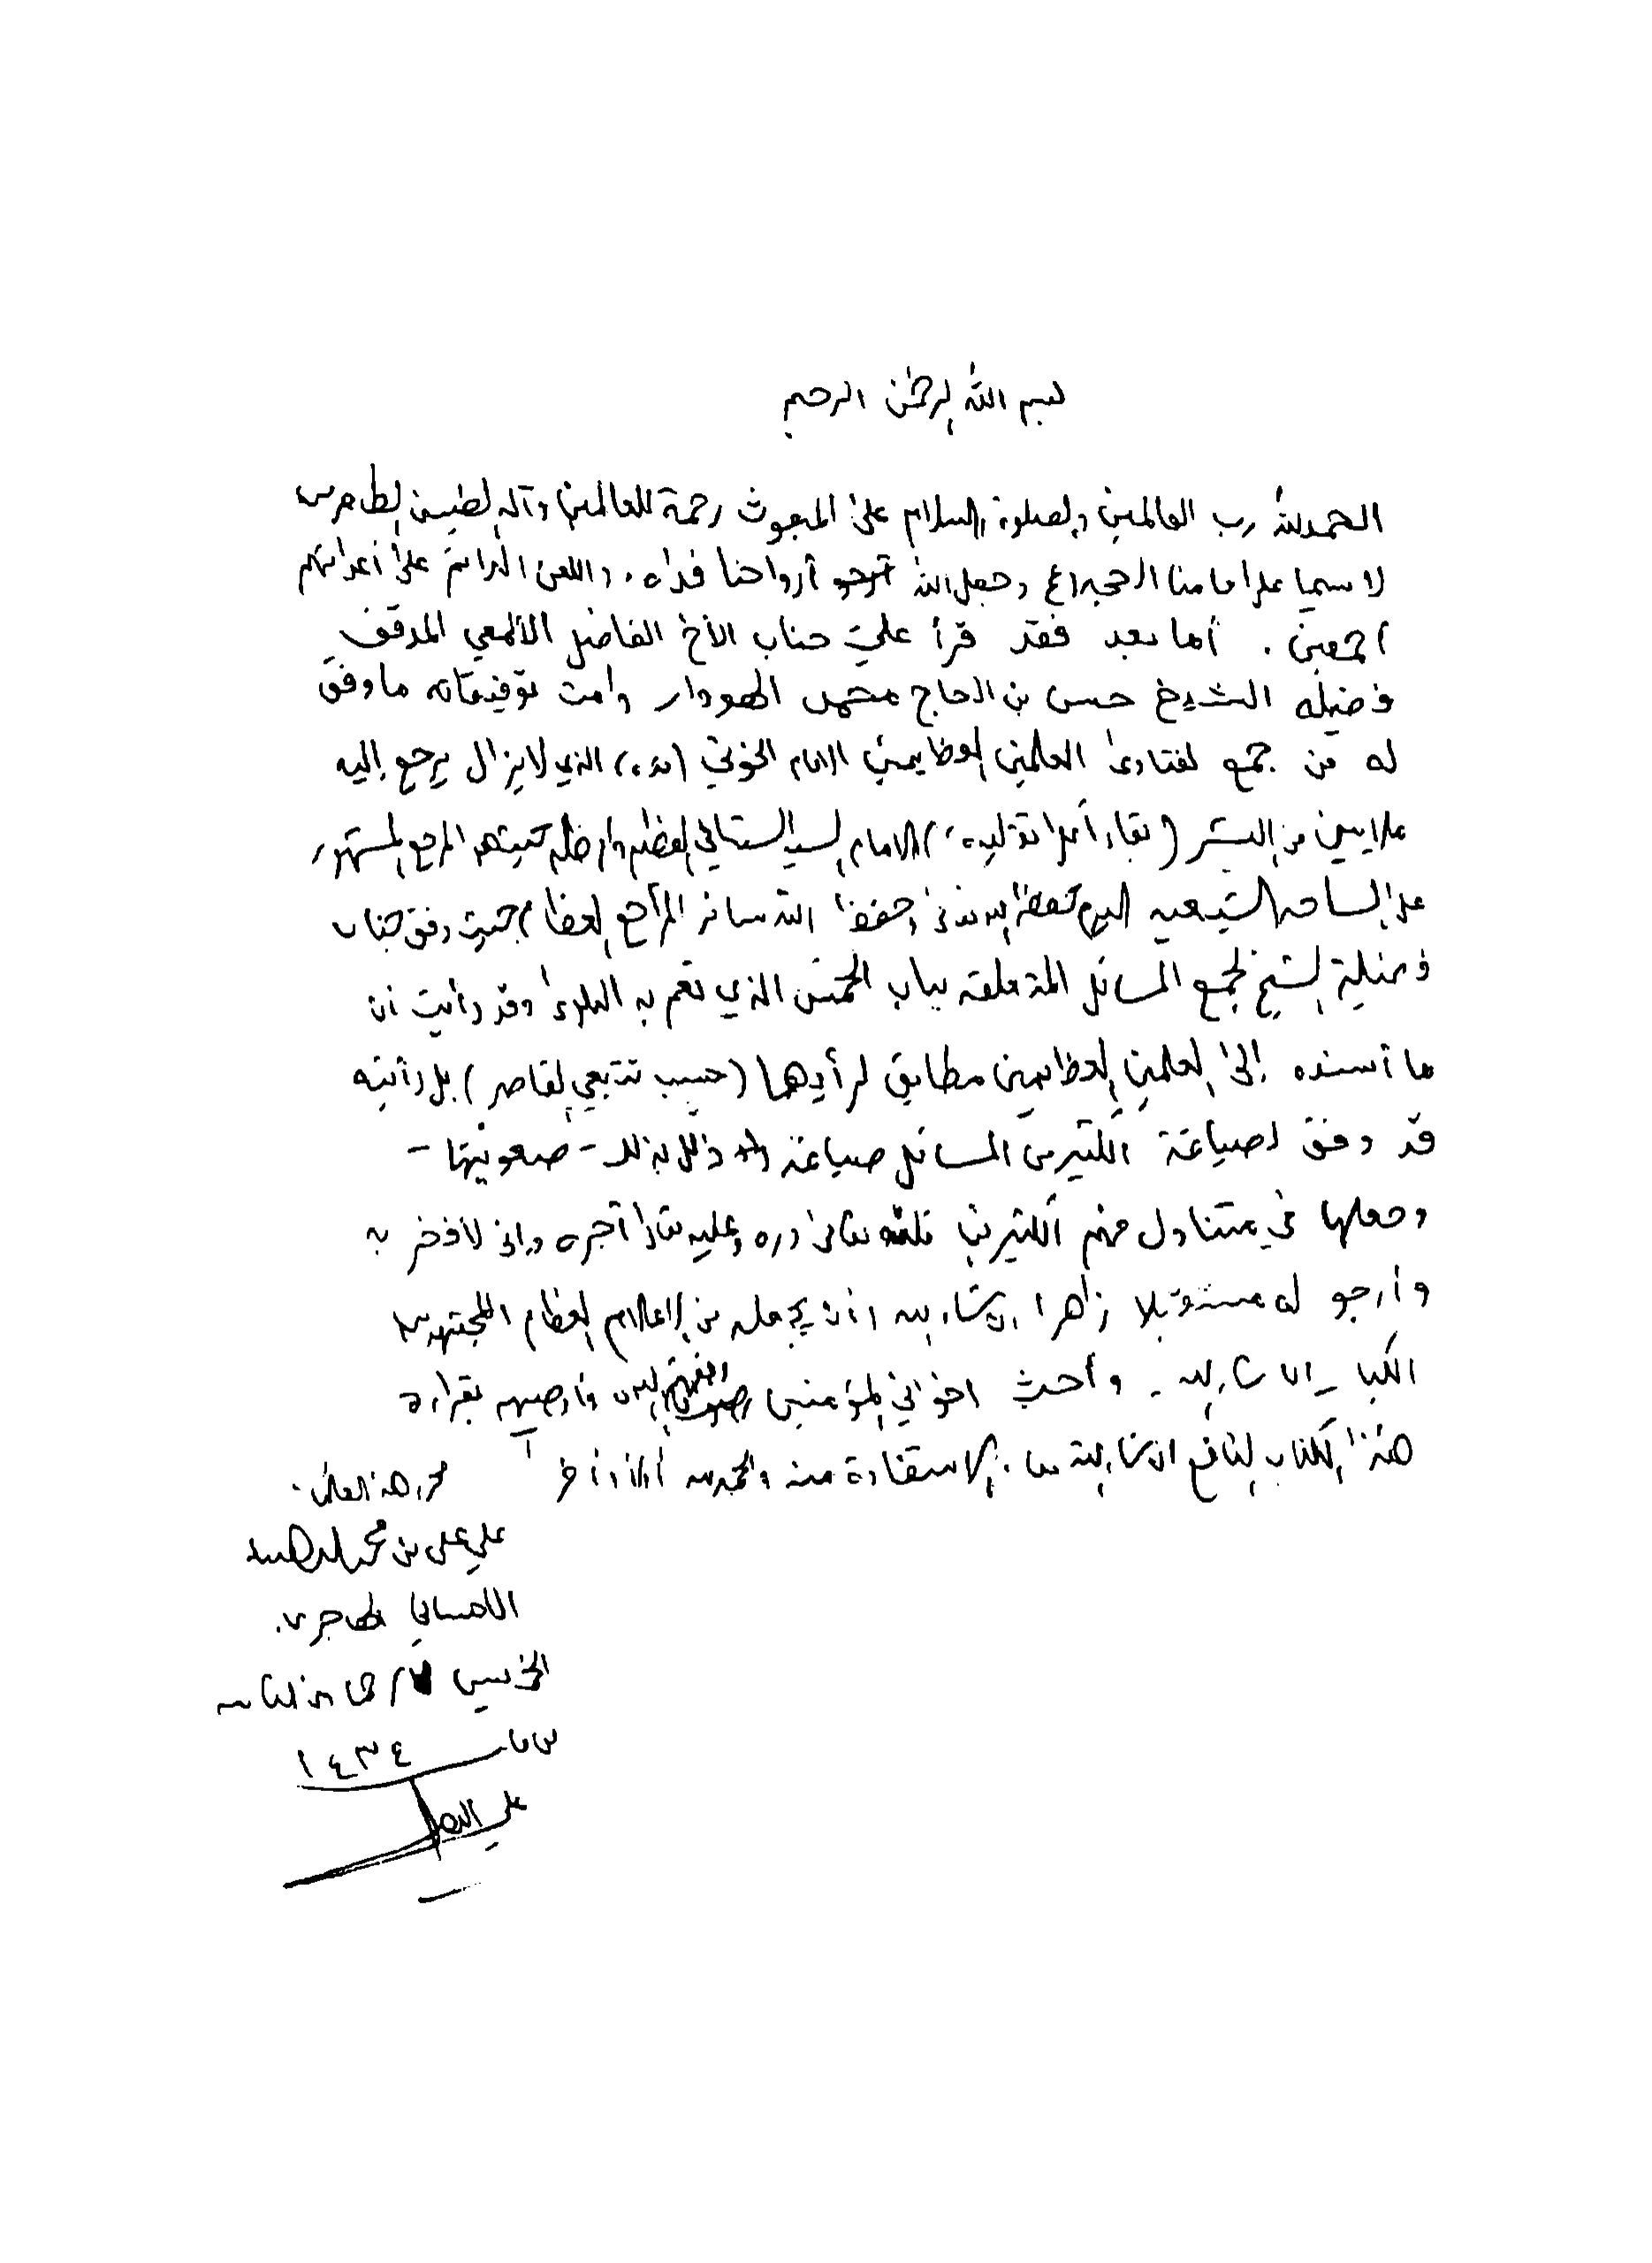 بسم الله الرحمن الرحيم
الحمد لله رب العالمين والصلوة والسلام على المبعوث رحمة للعالمين وآله الطيبين الطاهرين
لا سيما على إمامنا الحجة وجعل الله أرواحنا فداه. واللعن الدائم على أعدائهم
أجمعين. أما بعد فقد قرأ عليّ جناب الأخ الفاضل الألمعي المدقق
فضيلة الشيخ حسن بن الحاج محمد دامت توفيقاته ما وفق
له من جمع لفتاوى العلمين العظيمين الإمام الخوئي (قده) الذي لا يزال يرجع إليه
ملايين من البشر (بقاءً على تقليده) والإمام السيد السستاني المرجع المشهور
على الساحة الشيعية اليوم حفظه الله وحفظ الله سائر المراجع العظام حيث وفق جناب
فضيلة الشيخ لجمع المسائل المتعلقة بباب الخمس الذي تعم به البلوى وقد رأيت أن
ما أسنده إلى العلمين العظيمين مطابق لرأيهما (حسب تتبعي القاصر) بل رأيته
قد وفق لصياغة الكثير من المسائل صياغة ذلل بذلك - صعوبتها -
وجعلها في متناول فهم الكثيرين فلله تعالى دره وعليه تعالى أجره وإني لأفخر به
وأرجو له مستقبلا زاهرا إن شاء الله وأن يجعله من الأعلام العظام المجتهدين
الكبار إن شاء الله. وأحث إخواني المؤمنين وأوصيهم بقراءة
هذا الكتاب النافع إن شاء الله والاستفادة منه والحمد لله أولا وآخرا
علي بن محمد
الأحسائي
الخميس
١٤٣٤
علي